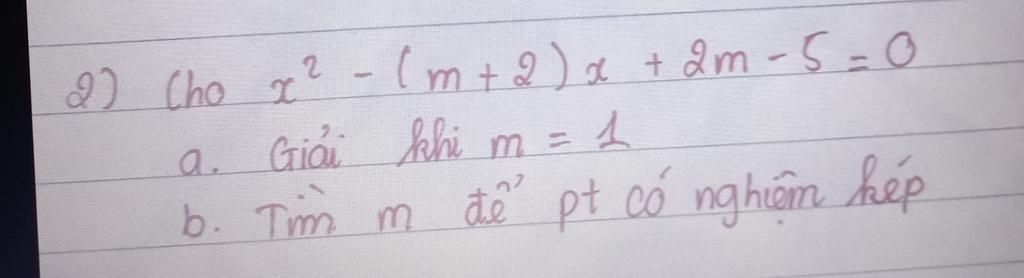 2) Cho x² - (m + 2)x + 2m - 5 = 0
a. Giải khi m = 1
b. Tìm m để pt có nghiệm kép